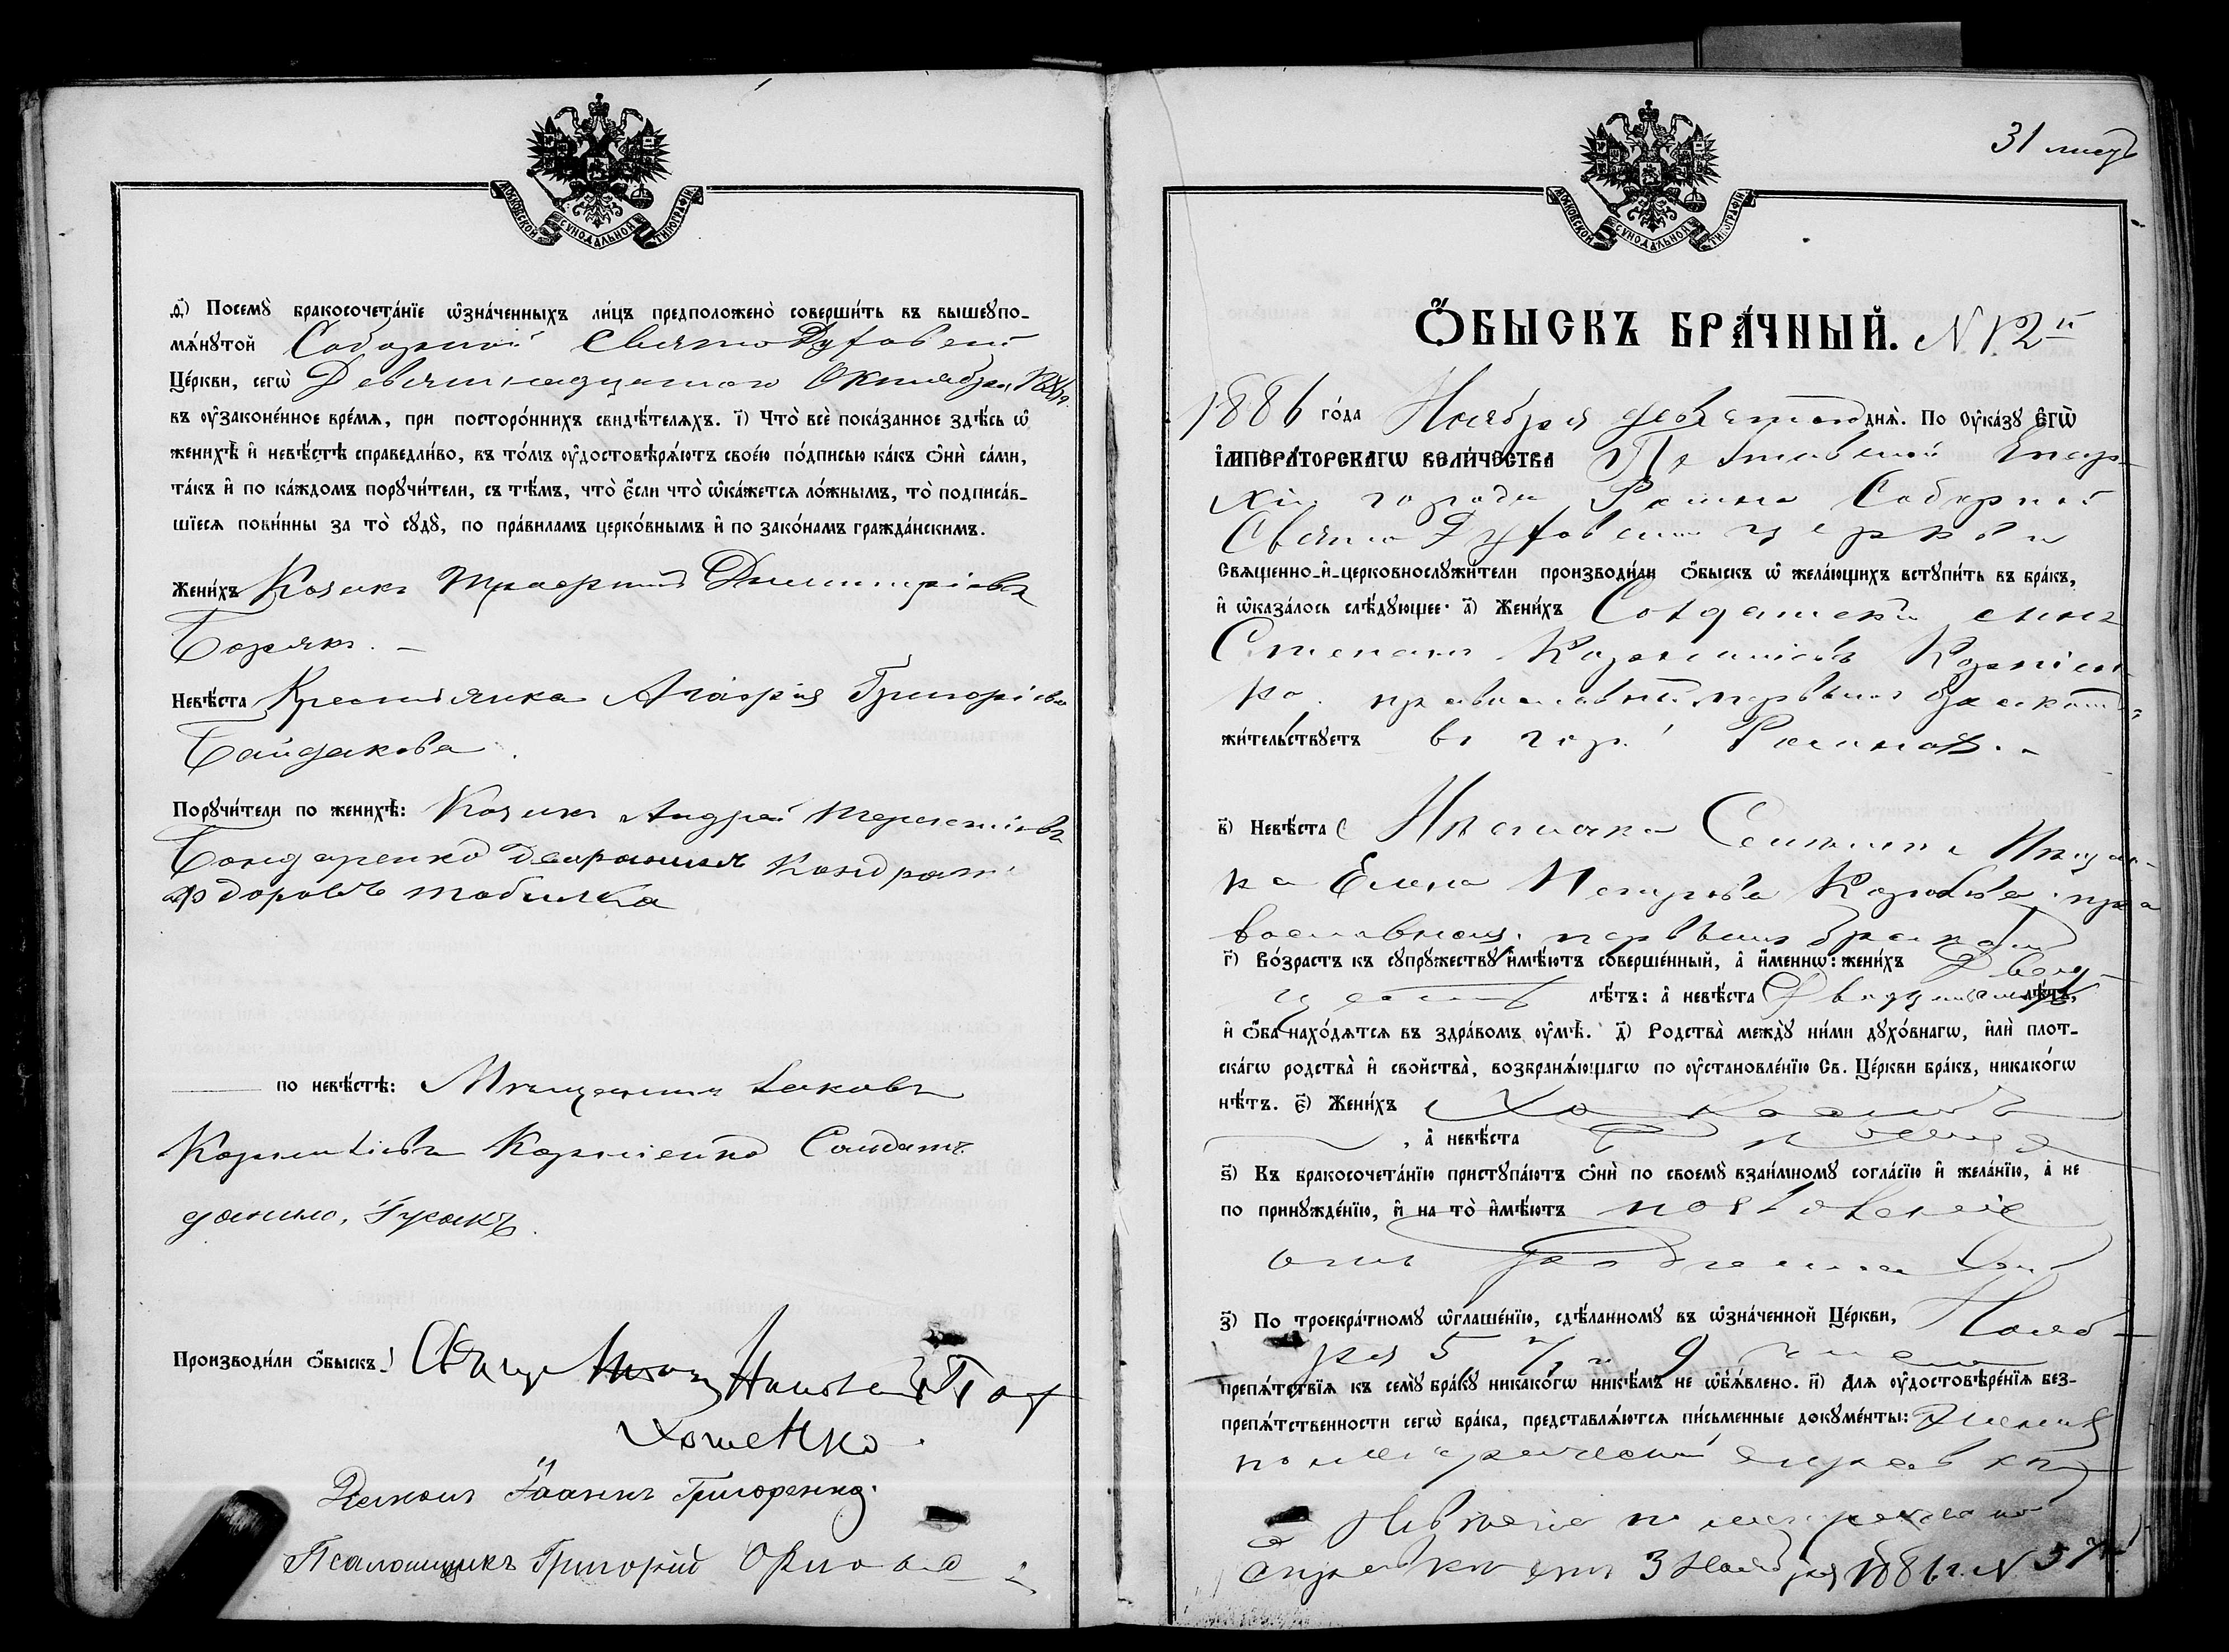 МОСКОВСКОЙ СѴНОДАЛЬНОЙ ТИПОГРАФІИ
д҃і) Посемꙋ̀ бракосочета́нїе ѡ҆зна́ченныхъ ли́цъ предположено̀ соверши́ть въ вышеꙋпо-
мѧ́нꙋтой Соборной Свято Духовской
Це́ркви, сегѡ̀ Девятнадцатого Октября, 1886 г.
въ ᲂу҆законе́нное вре́мѧ, при посторо́ннихъ свидѣ́телѧхъ. ї) Что̀ всѐ пока́занное здѣ́сь ѡ҆
женихѣ̀ и҆ невѣ́стѣ справедли́во, въ то́мъ ᲂу҆достовѣрѧ́ютъ свое́ю по́дписью ка́къ ѻ҆нѝ са́ми,
та́къ и҆ по ка́ждомъ порꙋчи́тели, съ тѣ́мъ, что̀ є҆́сли что̀ ѡ҆ка́жетсѧ ло́жнымъ, то̀ подписа́в-
шїесѧ пови́нны за то̀ сꙋдꙋ̀, по пра́виламъ церко́внымъ и҆ по зако́намъ гражда́нскимъ.
Жени́хъ Козакъ Димитріевъ
Борякъ. –
Невѣ́ста Крестьянка Агафія Григоріева
Байдакова.
Порꙋчи́тели по женихѣ̀: Козакъ Андрей Терентіевъ
Бондаренко дворянинъ Кондратъ
фдоровъ товилка
по невѣ́стѣ: Мѣщанинъ Іаковъ
Корниліевъ Корніенко Солдатъ
данило, Гусакъ.
Производи́ли ѻ҆́быскъ: Свящ.
Діаконъ Іоаннъ Григоренко.
Псаломщикъ Григорій
31 листъ
МОСКОВСКОЙ СѴНОДАЛЬНОЙ ТИПОГРАФІИ
Ѻ҆́БЫСКЪ БРА́ЧНЫЙ. N 12й
1886 го́да Ноября девятого днѧ̀. По ᲂу҆ка́зꙋ Е҆ГѠ̀
І҆МПЕРА́ТОРСКАГѠ ВЕЛИ́ЧЕСТВА Полтавской Епар-
хіи города Ромна Соборной
Свято Духовской церкви
Свѧще́нно-и҆-церковнослꙋжи́тели производи́ли ѻ҆́быскъ ѡ҆ жела́ющихъ встꙋпи́ть въ бра́къ,
и҆ ѡ҆каза́лось слѣ́дꙋющее: а҃) Жени́хъ Солдатскій сынъ
Степанъ Корніен-
ко. православный первымъ бракомъ
жи́тельствꙋетъ въ гор. Ромнахъ. –
в҃) Невѣ́ста Мѣщан-
ка Елена Петрова пра
вославная. первымъ бракомъ
г҃) Во́зрастъ къ сꙋпрꙋ́жествꙋ и҆мѣ́ютъ соверше́нный, а҆ и҆́меннѡ: жени́хъ Двад-
цать лѣ́тъ: а҆ невѣ́ста Двадцать лѣ́тъ,
и҆ ѻ҆́ба нахо́дѧтсѧ въ здра́вомъ ᲂу҆мѣ̀. д҃) Родства̀ междꙋ̀ ни́ми дꙋхо́внагѡ, и҆лѝ плот-
ска́гѡ родства̀ и҆ свойства̀, возбранѧ́ющагѡ по ᲂу҆становле́нїю Св. Це́ркви бра́къ, никако́гѡ
нѣ́тъ. є҃) Жени́хъ Холостъ
, а҆ невѣ́ста
ѕ҃) Къ бракосочета́нїю пристꙋпа́ютъ ѻ҆нѝ по своемꙋ̀ взаи́мномꙋ согла́сїю и҆ жела́нїю, а҆ не
по принꙋжде́нїю, и҆ на то̀ и҆мѣ́ютъ позволеніе
отъ
з҃) По троекра́тномꙋ ѡ҆глаше́нїю, сдѣ́ланномꙋ въ ѡ҆зна́ченной Це́ркви, Нояб-
ря 5 7 и 9 чиселъ
препѧ́тствїѧ къ семꙋ̀ бра́кꙋ никако́гѡ никѣ́мъ не ѡ҆б̾ѧ́влено. и҃) Длѧ ᲂу҆достовѣре́нїѧ без-
препѧ́тственности сегѡ̀ бра́ка, представлѧ́ютсѧ пи́сьменные докꙋме́нты: Жениху
по метрической справкѣ
а Невѣстѣ по метрической
справкѣ отъ 3 Ноября 1886 г. N 57